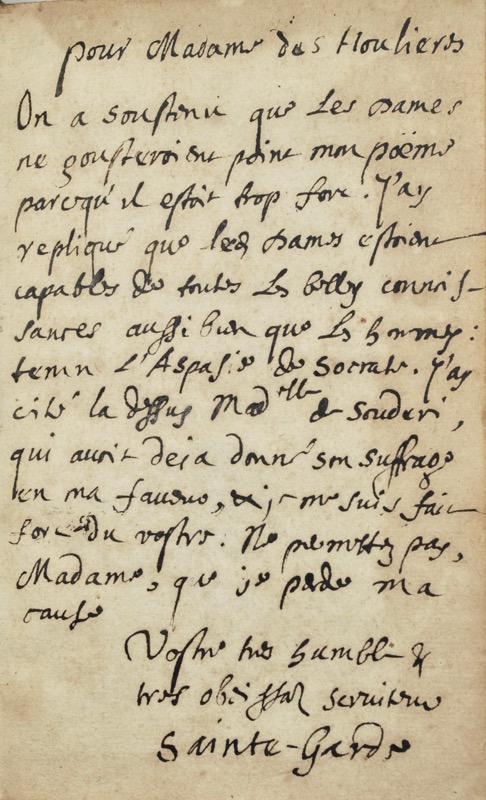 pour Madame des Houlieres
On a soustenu que les Dames
ne gousteroient point mon poëme
parcequ'il estoit trop fort. J'ay
repliqué que les Dames estoient
capables de toutes les belles connois-
sances aussi bien que les hommes:
temin l'Aspasie de Socrate. J'ay
cité la dessus Mad^elle de Scuderi,
qui avoit deja donné son suffrage
en ma faveur, & je me suis fait
fort du vostre. Ne permettez pas,
Madame, que je perde ma
cause
Vostre tres humble &
tres obeissant serviteur
Sainte-Garde